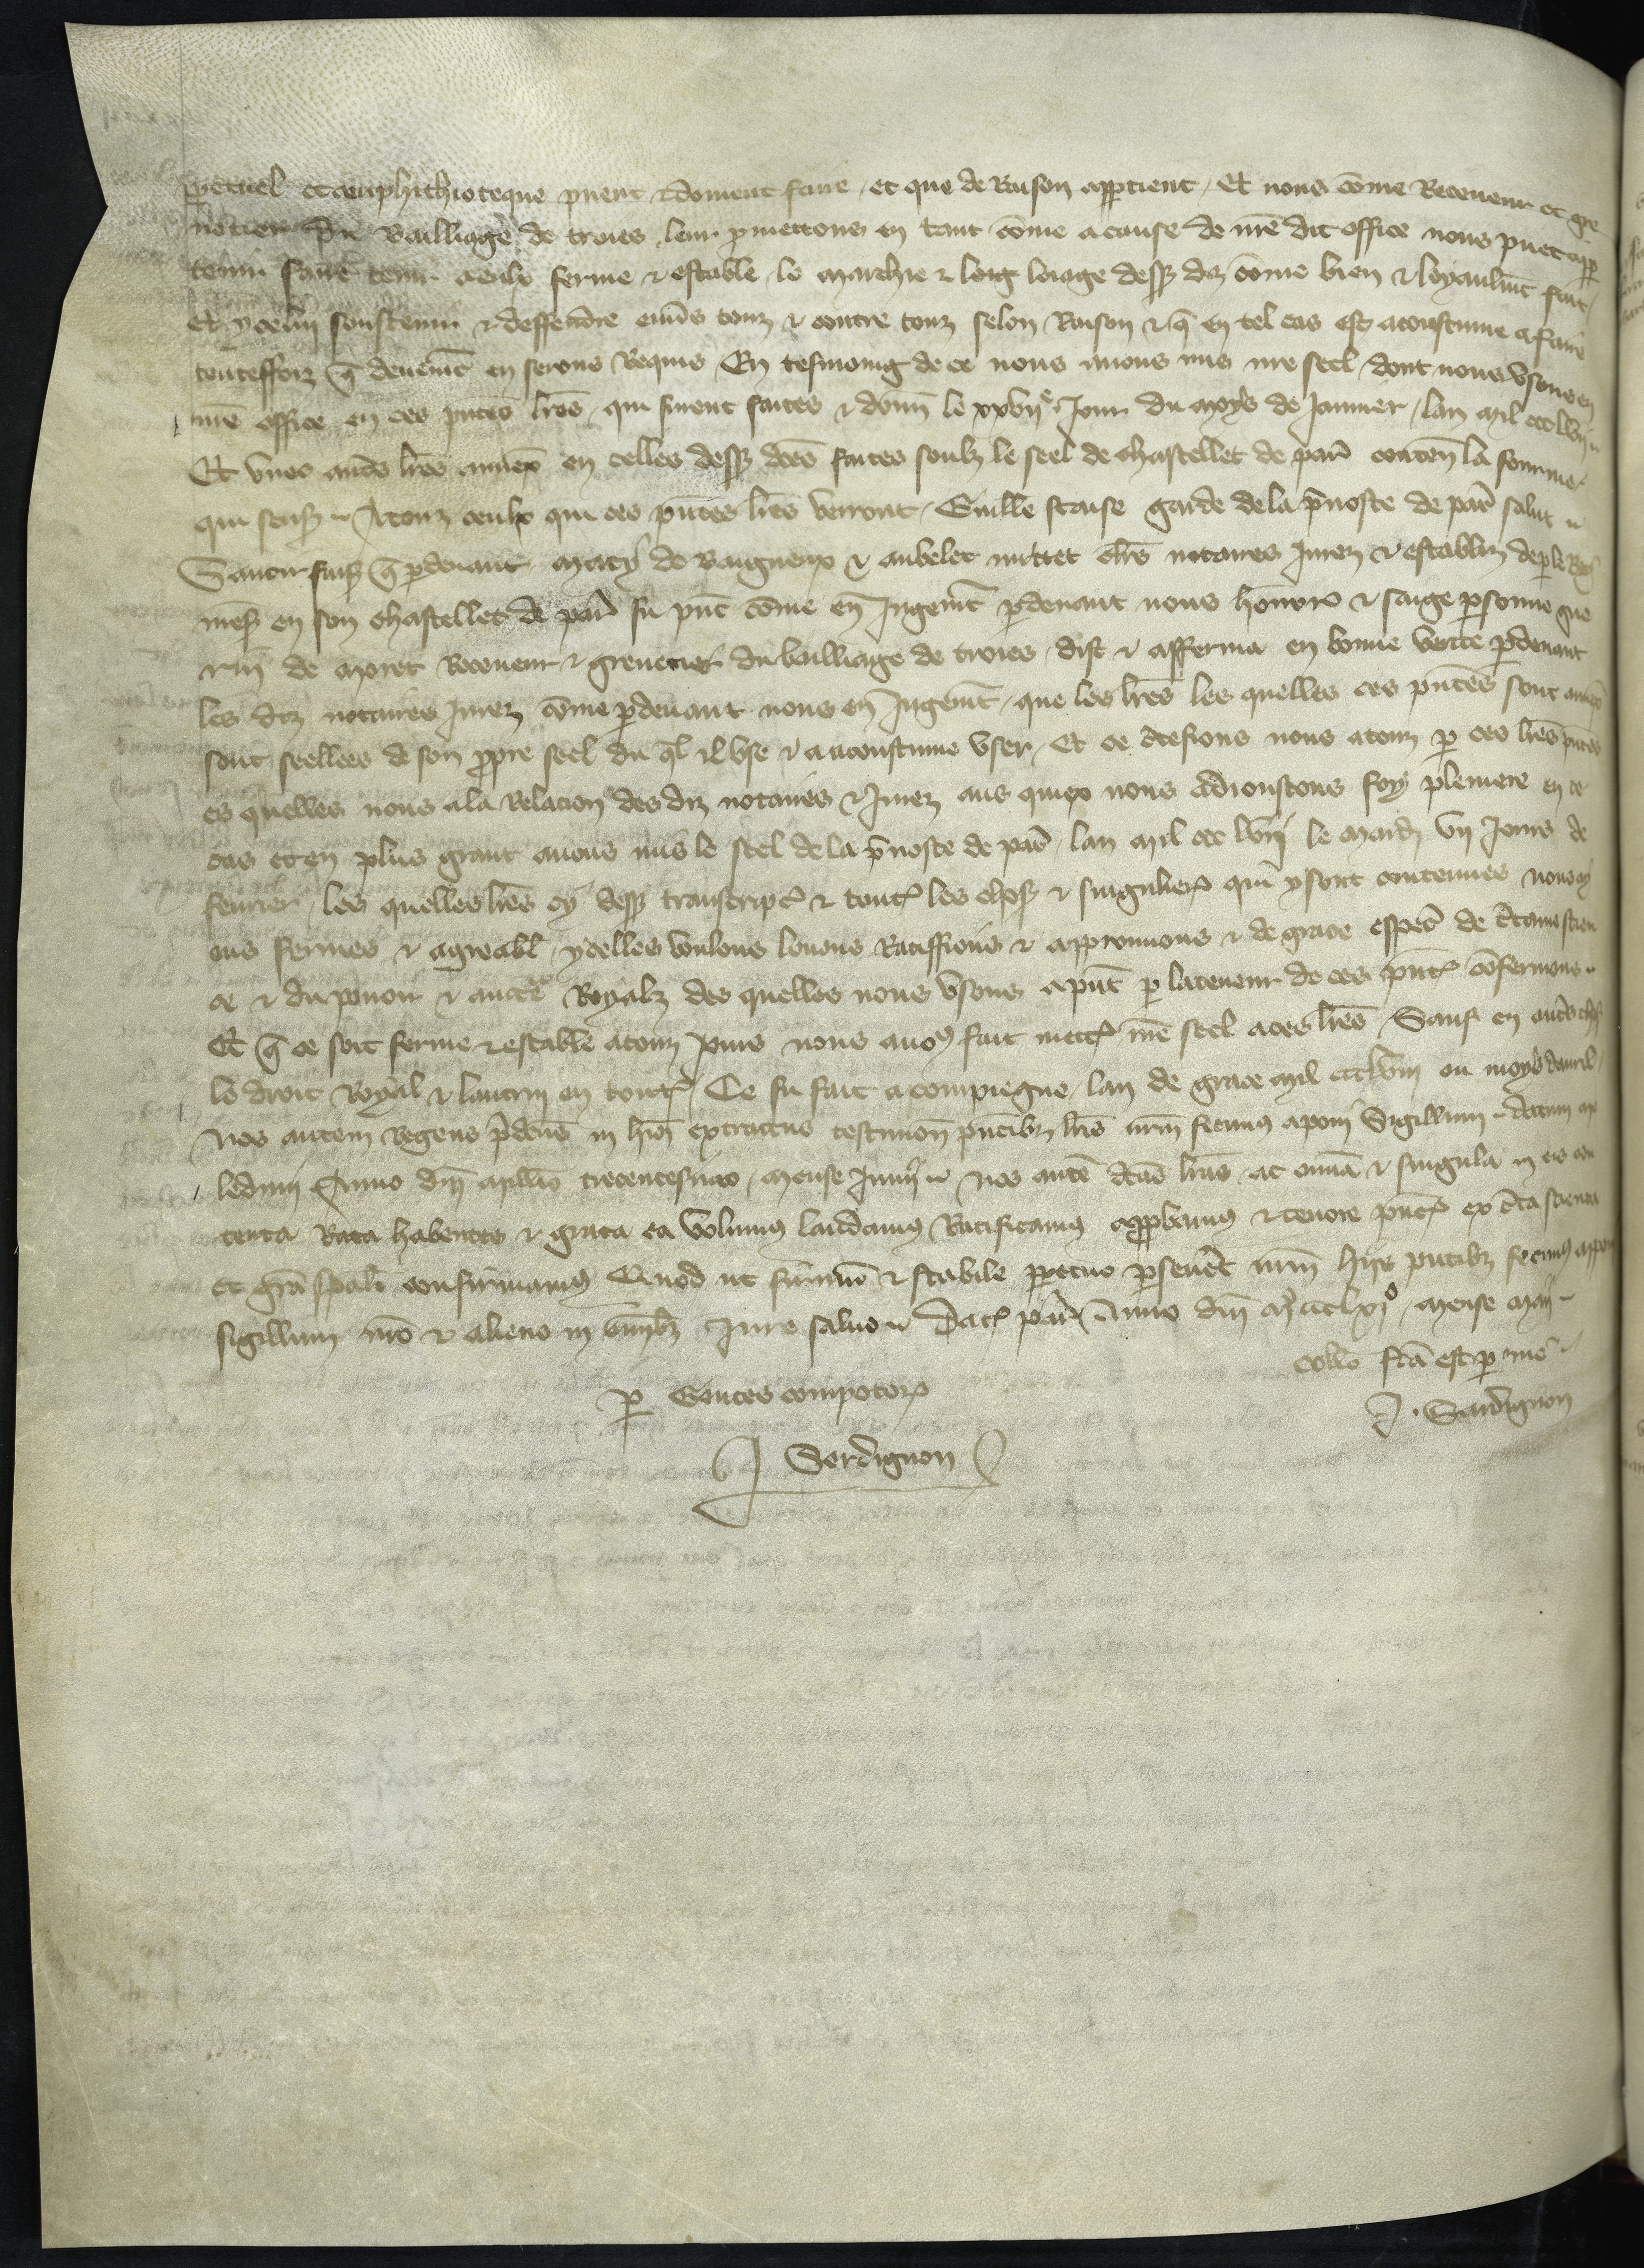 ꝑpetuel et emphithioteque pueut & doiuent faire et que de Raison appartient / Et nous cõme Receueur et gre
netier du Bailliage de troies leur ꝓmettons en tant cõme a cause de nr̃e dit office nous puet app
tenir faire tenir a eulx ferme & estable le marchie & loig loiage dess dis cõme bien & loyaulmt fait
Et yceluy soustenir & deffendre enũs touz & contre touz selon Raison & q̃ en tel cas est acoustume a faire
toutesfoiz q̃ deuemt en serons Requis / En tesmoing de ce nous auons mis nr̃e seel dont nous vsons en
nr̃e office en ces pñtes lr̃es qui furent faites & donn̄ le xxvije Jour du moys de Januier lan mil ccc lvij
Et vnes autres lr̃es annex en celles dess dc̃es faites soubz le seel de chastellet de par̃ conten̄ la forme
qui sensuit A touz ceulx qui ces pñtes lr̃es verront Guill̃e staise garde de la p̃uoste de par̃ salut
Sauoir faiss̃ q̃ ꝑdeuant Macy de Baigneux & aubelet mittet cl̃rs notaires Jurez & establiz de ꝑ le Roy
mess̃ en son chastellet de par̃ fu p̃nt cõme en Jugemt ꝑdeuant nous honnor̃ & saige ꝑsonne gue
rin̄ de moret Receueur & grenetier du bailliage de troies dist & afferma en bonne verite ꝑdeuant
les diz notaires Jurez cõme ꝑdeuant nous en Jugemt que les lr̃es les quelles ces pñtes sont annex̃
sont seellees de son ꝓpre seel du q̃l Il vse & a acoustume vser Et ce c̃tefions nous a touz ꝑ ces lr̃es pñtes
es quelles nous a la Relacion des diz notaires & Jurez aus quiex nous adioustons foy pleniere en ce
cas et en plus grant auons mis le seel de la p̃uoste de par̃ lan mil ccc lvij le mardi vij Jours de
feurier les quelles lr̃es cy dess transcript̃ & tout̃ les chos̃ & singulier̃ qui y sont contenues nous ay
ans fermes & agreabl̃ ycelles voulons louons Ratiffions & approuuons & de grace esp̃cl de c̃taine scien
ce & du pouoir & aucte Royalz des quelles nous vsons a p̃nt ꝑ la teneur de ces p̃nt̃ cõfermons
Et q̃ ce soit ferme & estable a touz jours nous auõs fait mett̃ nr̃e seel a ces lr̃es Sauf en autres chos̃
le droit Royal & lautruy en tout̃ / Ce fu fait a compiegne lan de grace mil ccclviij ou moys dauril
Nos autem Regens p̃dcũs in hui extractus testimon̄ pñtibz lr̃is nr̃m fecimus apon̄i Sigillum datum
ledun̄ Anno dn̄i mill̃io trecentesimo mense Junij Nos aute dc̃as lr̃as ac om̃ia & singula in eis con
tenta Rata habentes & grata ea volumus laudamus Ratificamus approbamus & tenore pñt̃ ex c̃ta sciencia
et gr̃a sp̃ali confirmamus Quod ut firmum & stabile ꝑpetuo ꝑseuet nr̃m hijs pñtibz fecimus appon̄i
sigillum nr̃o & alieno in om̃ibz Jure saluo Dat̃ par̃ Anno dn̄i m ccclxio mense maij
coll̃o fc̃a est ꝑ me
ꝑ Gentes compotor̃
J. Sardignon
J Serdignon